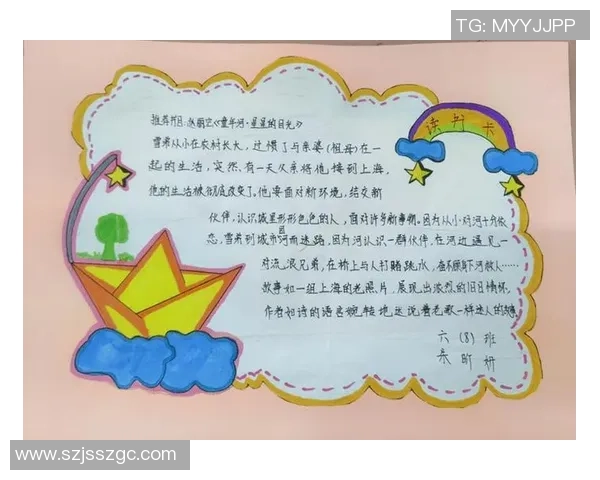 TG: MYYJJPP
读书卡
推荐书目:赵丽宏《童年河·星星的目光》
雪弟从小在农村长大,过惯了与亲婆(祖母)在一
起的生活,突然,有一天父亲将他接到上海,
他的生活被彻底改变了。他要面对新环境,结交新
伙伴,认识城里形形色色的人,面对许多新事物。因为从小对河十分依
恋,雪弟到城市因河而迷路,因为河认识一群伙伴,在河边遇见一
对流浪兄弟,在桥上与人打赌跳水,奋不顾身下河救人……
故事如一组上海的老照片,展现出浓烈的旧日情怀,
作者如诗的语言婉转地述说着老歌一样迷人的故事
六(8)班
朱昕妍
www.szjsszgc.com